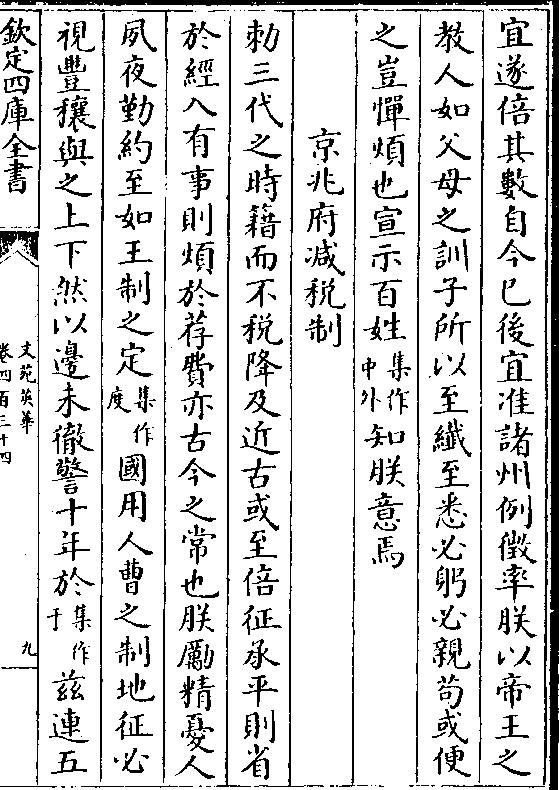 宜遂倍其數自今已後宜准諸州例徵率朕以帝王之
教人如父母之訓子所以至纎至悉必躬必親苟或便
之豈憚煩也宣示百姓集作中外知朕意焉
京兆府減税制
勅三代之時籍而不税降及近古或至倍征承平則省
於經入有事則煩於荐費亦古今之常也朕勵精憂人
夙夜勤約至如王制之定集作度國用人曹之制地征必
視豐穰與之上下然以邊未徹警十年於集作于兹連五
欽定四庫全書
文苑英華
卷四百三十四
九